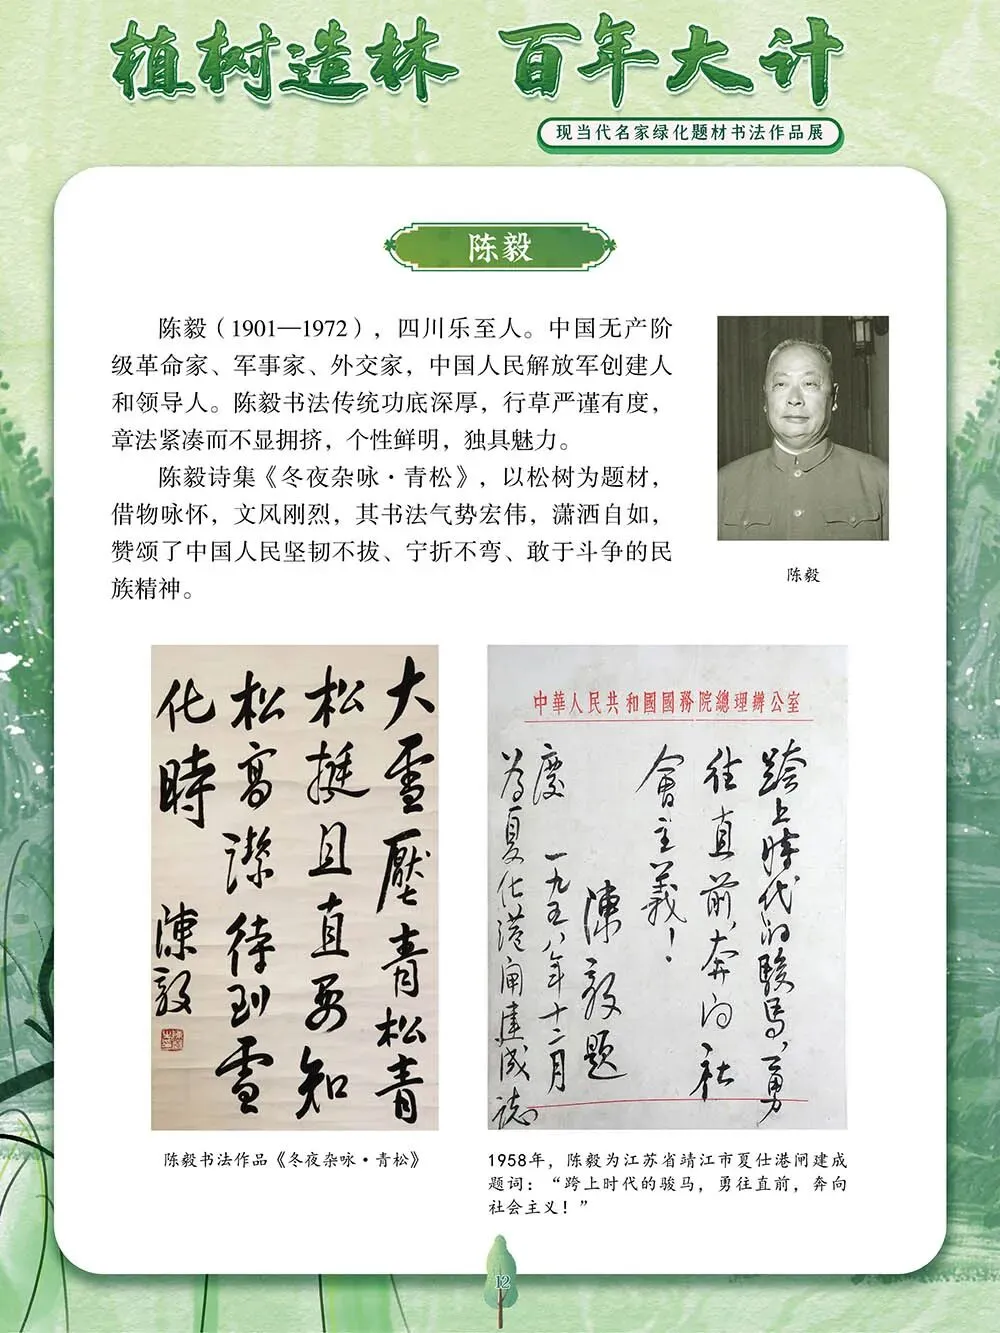 植树造林 百年大计
现当代名家绿化题材书法作品展
陈毅
陈毅（1901—1972），四川乐至人。中国无产阶
级革命家、军事家、外交家，中国人民解放军创建人
和领导人。陈毅书法传统功底深厚，行草严谨有度，
章法紧凑而不显拥挤，个性鲜明，独具魅力。
陈毅诗集《冬夜杂咏·青松》，以松树为题材，
借物咏怀，文风刚烈，其书法气势宏伟，潇洒自如，
赞颂了中国人民坚韧不拔、宁折不弯、敢于斗争的民
族精神。
陈毅
大雪壓青松青
松挺且直要知
松高潔待到雪
化時
陳毅
中華人民共和國國務院總理辦公室
跨上時代的駿馬，勇
往直前，奔向社
會主義！
陳毅題
一九五八年十二月
為夏仕港闸建成誌
慶
陈毅书法作品《冬夜杂咏·青松》
1958年，陈毅为江苏省靖江市夏仕港闸建成
题词：“跨上时代的骏马，勇往直前，奔向
社会主义！”
12